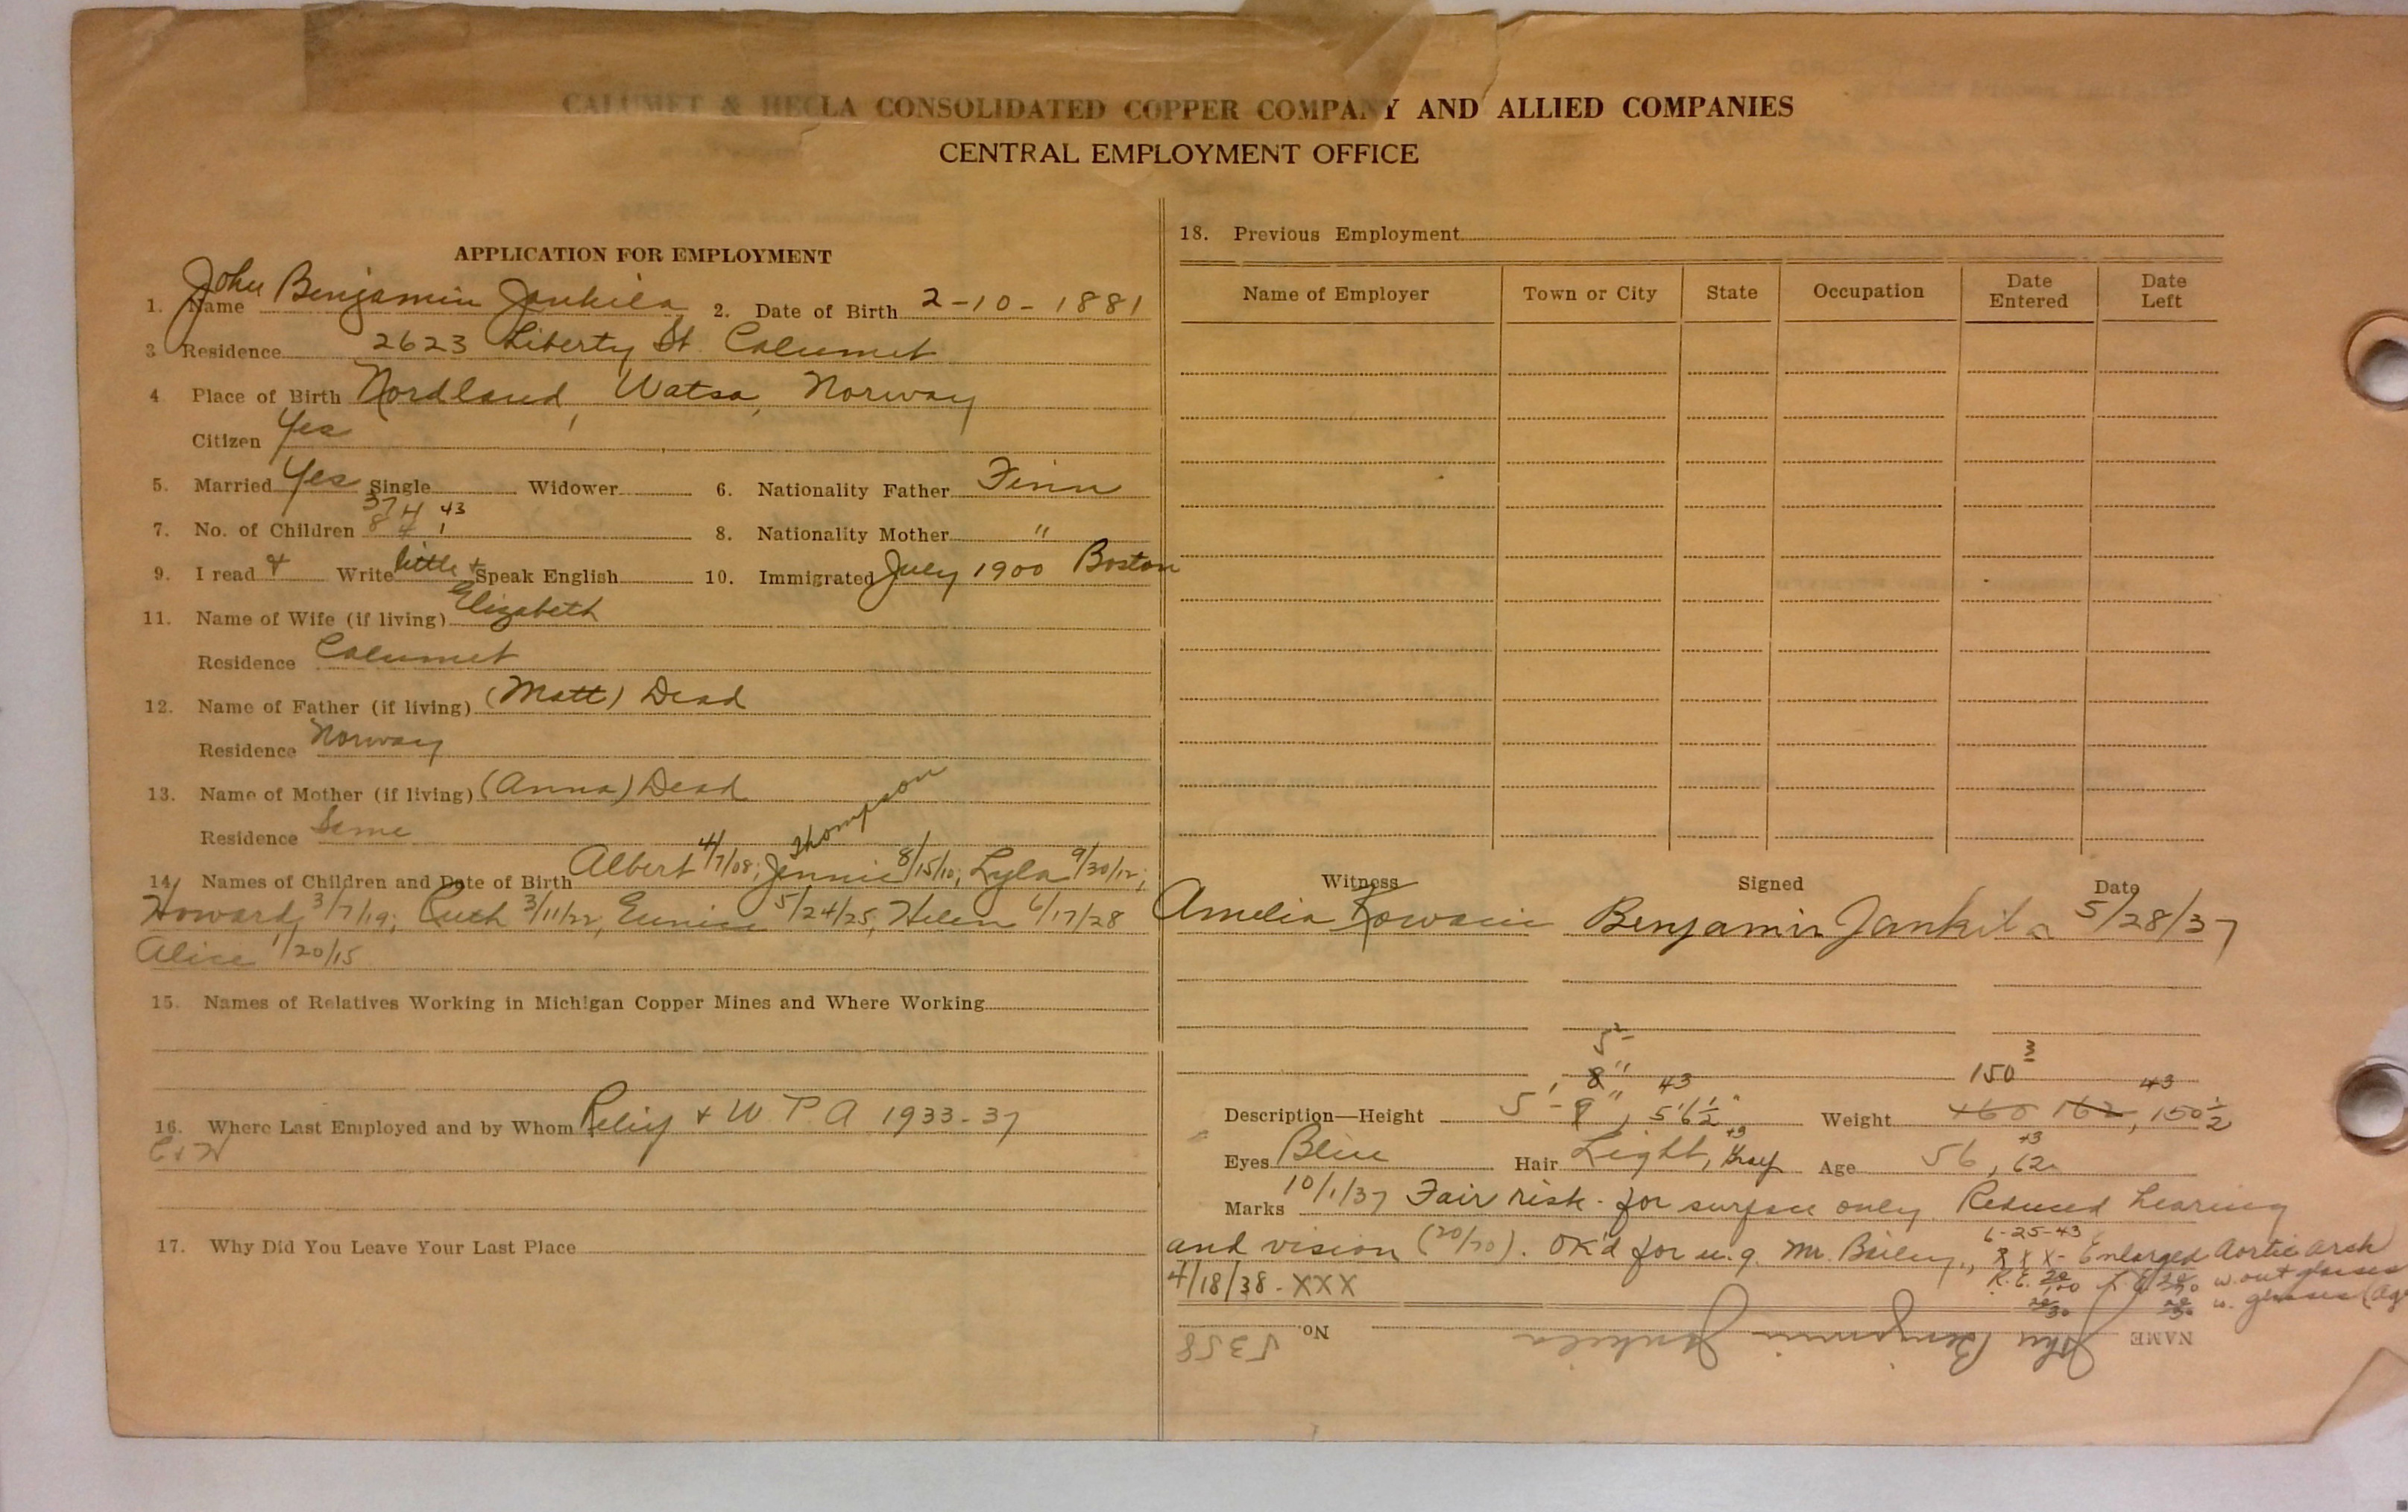 CALUMET & HECLA CONSOLIDATED COPPER COMPANY AND ALLIED COMPANIES
CENTRAL EMPLOYMENT OFFICE
APPLICATION FOR EMPLOYMENT
1. Name John Benjamin Jankila 2. Date of Birth 2-10-1881
3 Residence 2623 Liberty St. Calumet
4 Place of Birth Nordland, Watsa, Norway
Citizen Yes
5. Married Yes Single Widower 6. Nationality Father Finn
37 4 43
7. No. of Children 8 4 1 8. Nationality Mother "
9. I read & Write little & Speak English 10. Immigrated July 1900 Boston
11. Name of Wife (if living) Elizabeth
Residence Calumet
12. Name of Father (if living) (Matt) Dead
Residence Norway
13. Name of Mother (if living) (Anna) Dead
Residence Same
Thompson
14 Names of Children and Date of Birth Albert 4/7/08; Jennie 8/15/10; Lyla 9/30/12;
Howard, 3/7/19; Ruth 3/11/22, Eunice 5/24/25, Helen 6/17/28
Alice 1/20/15
15. Names of Relatives Working in Michigan Copper Mines and Where Working
16. Where Last Employed and by Whom Relief & W.P.A 1933-37
17. Why Did You Leave Your Last Place
18. Previous Employment
Name of Employer Town or City State Occupation Date Entered Date Left
Witness Signed Date
Amelia Benjamin Jankila 5/28/37
Description—Height 5'-9", 5'6½" 43 Weight 160 162, 150½ 43
8" 150
Eyes Blue Hair Light, Gray 43 Age 56, 62 43
Marks 10/1/37 Fair risk - for surface only Reduced hearing
and vision (20/70). OK'd for u.g. Mr. Bailey,, 6-25-43 XXX- Enlarged Aortic arch
4/18/38-XXX R.E. L.E. w.out glasses
w. glasses
NAME John Benjamin Jankila No. 5358